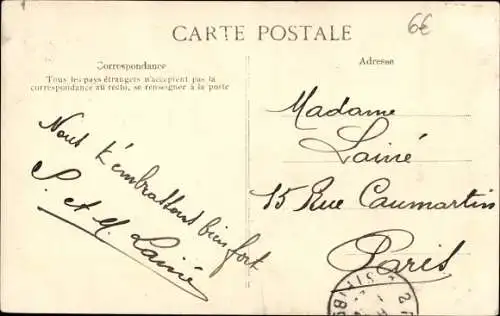 CARTE POSTALE
6€
Correspondance
Tous les pays étrangers n'acceptent pas la
correspondance au recto, se renseigner à la poste
Adresse
Nous t'embrassons bien fort
S. et M. Lainé
Madame
Lainé
15 Rue Caumartin
Paris